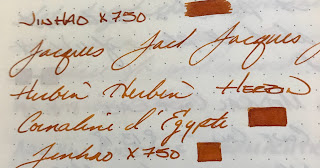 JINHAO X750
Jacques Jack Jacques J
Herbin Herbin HERBIN
Cornaline d'Égypte
Jinhao X750